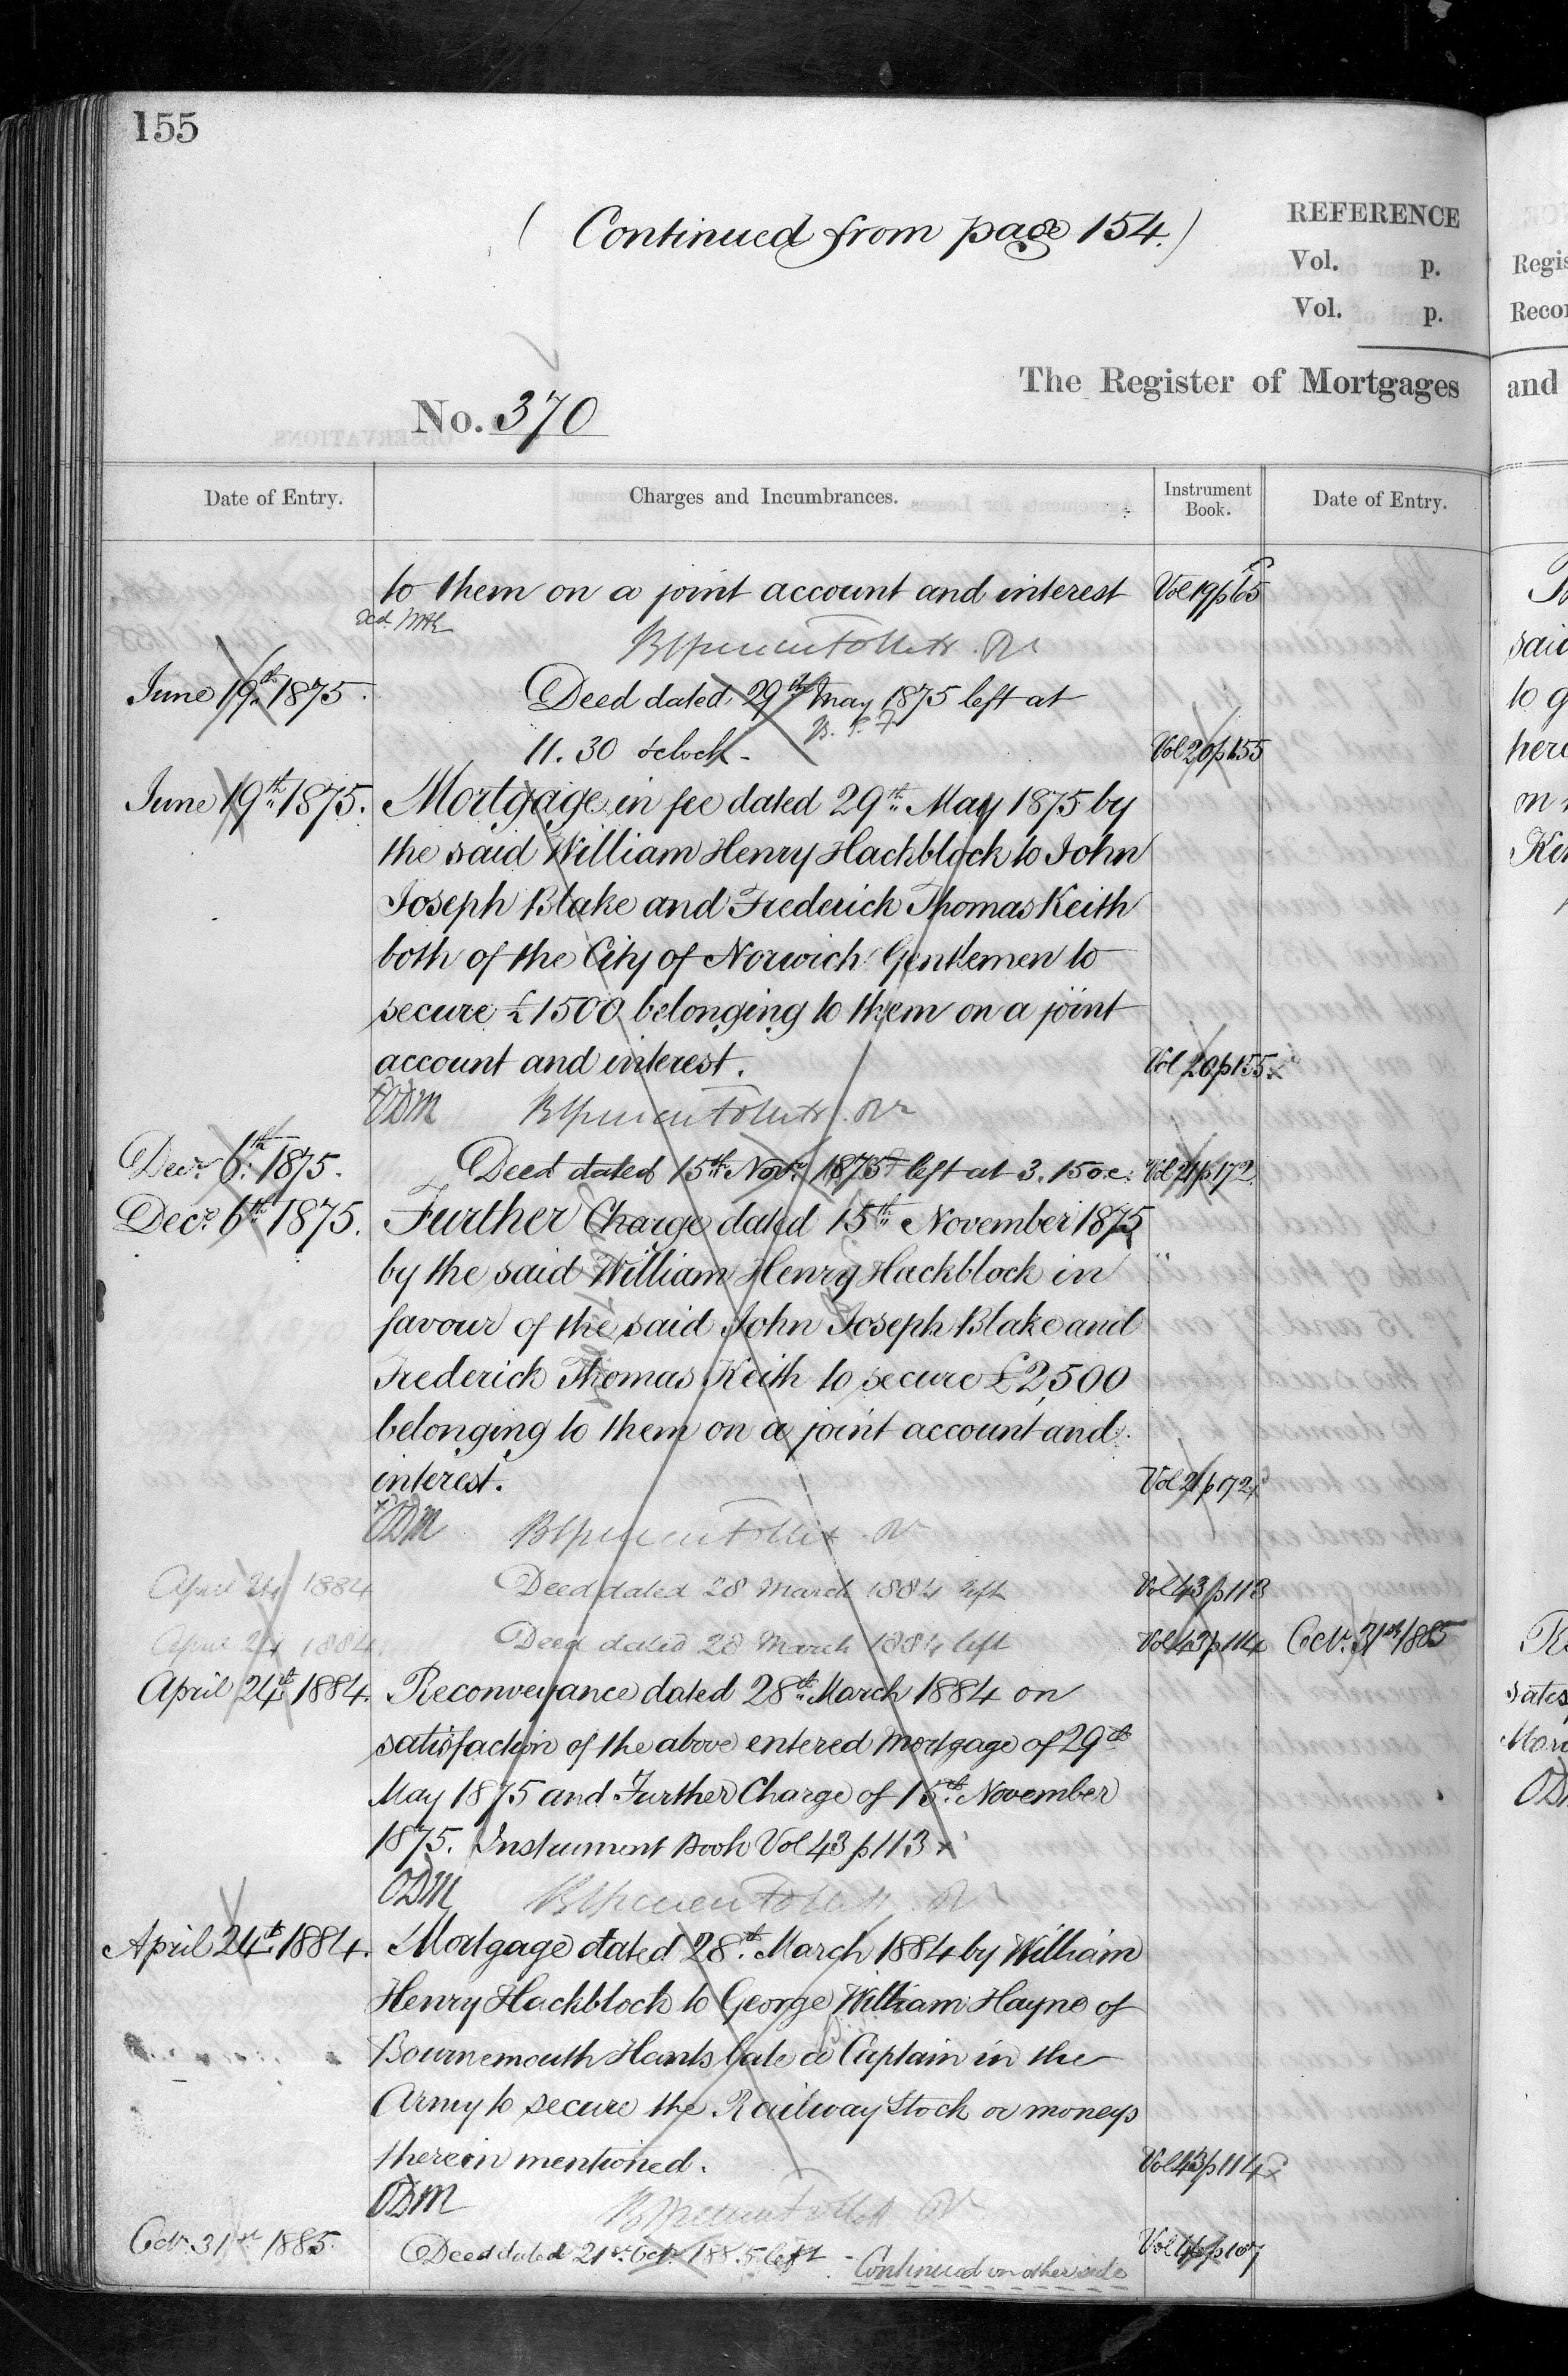 155
(Continued from page 154.)
REFERENCE
Vol. p.
Vol. p.
The Register of Mortgages
No. 370
Date of Entry. Charges and Incumbrances. Instrument Book. Date of Entry.
to them on a joint account and interest Vol 19 p 65
June 19th 1875. Deed dated 29th May 1875 left at
11.30 oclock - Vol 20 p 155
June 19th 1875. Mortgage in fee dated 29th May 1875 by
the said William Henry Hackblock to John
Joseph Blake and Frederick Thomas Keith
both of the City of Norwich Gentlemen to
secure £1500 belonging to them on a joint
account and interest. Vol 20 p 155
ODM
Decr. 6th 1875. Deed dated 15th Novr. 1875 left at 3.15 o.c. Vol 21 p 172
Decr. 6th 1875. Further Charge dated 15th November 1875
by the said William Henry Hackblock in
favour of the said John Joseph Blake and
Frederick Thomas Keith to secure £2,500
belonging to them on a joint account and
interest. Vol 21 p 172
ODM
April 24 1884 Deed dated 28 March 1884 left Vol 43 p 113
April 24 1884. Deed dated 28 March 1884 left Vol 43 p 114 Octr. 31st 1885
April 24th 1884. Reconveyance dated 28th March 1884 on
satisfaction of the above entered Mortgage of 29th
May 1875 and Further Charge of 15th November
1875. Instrument Book Vol 43 p 113
ODM
April 24th 1884. Mortgage dated 28th March 1884 by William
Henry Hackblock to George William Hayne of
Bournemouth Hants late a Captain in the
Army to secure the Railway Stock or moneys
therein mentioned. Vol 43 p 114
ODM
Octr. 31st 1885. Deed dated 21st Octr. 1885 left - Vol 46 p 107
Continued on other side
Regis
Recor
and
said
to g
here
on